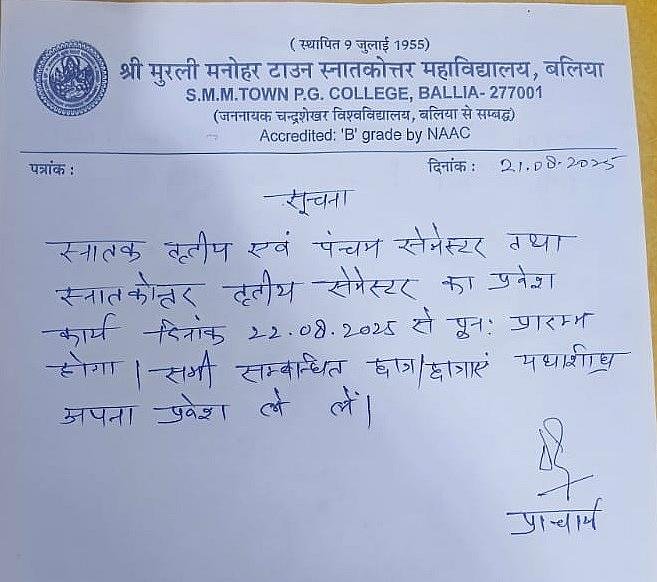 ( स्थापित 9 जुलाई 1955)
श्री मुरली मनोहर टाउन स्नातकोत्तर महाविद्यालय, बलिया
S.M.M.TOWN P.G. COLLEGE, BALLIA- 277001
(जननायक चन्द्रशेखर विश्वविद्यालय, बलिया से सम्बद्ध)
Accredited: 'B' grade by NAAC
पत्रांक : दिनांक : 21.08.2025
सूचना
स्नातक तृतीय एवं पंचम सेमेस्टर तथा
स्नातकोत्तर तृतीय सेमेस्टर का प्रवेश
कार्य दिनांक 22.08.2025 से पुनः प्रारम्भ
होगा। सभी सम्बन्धित छात्र/छात्राएं यथाशीघ्र
अपना प्रवेश ले लें।
प्राचार्य